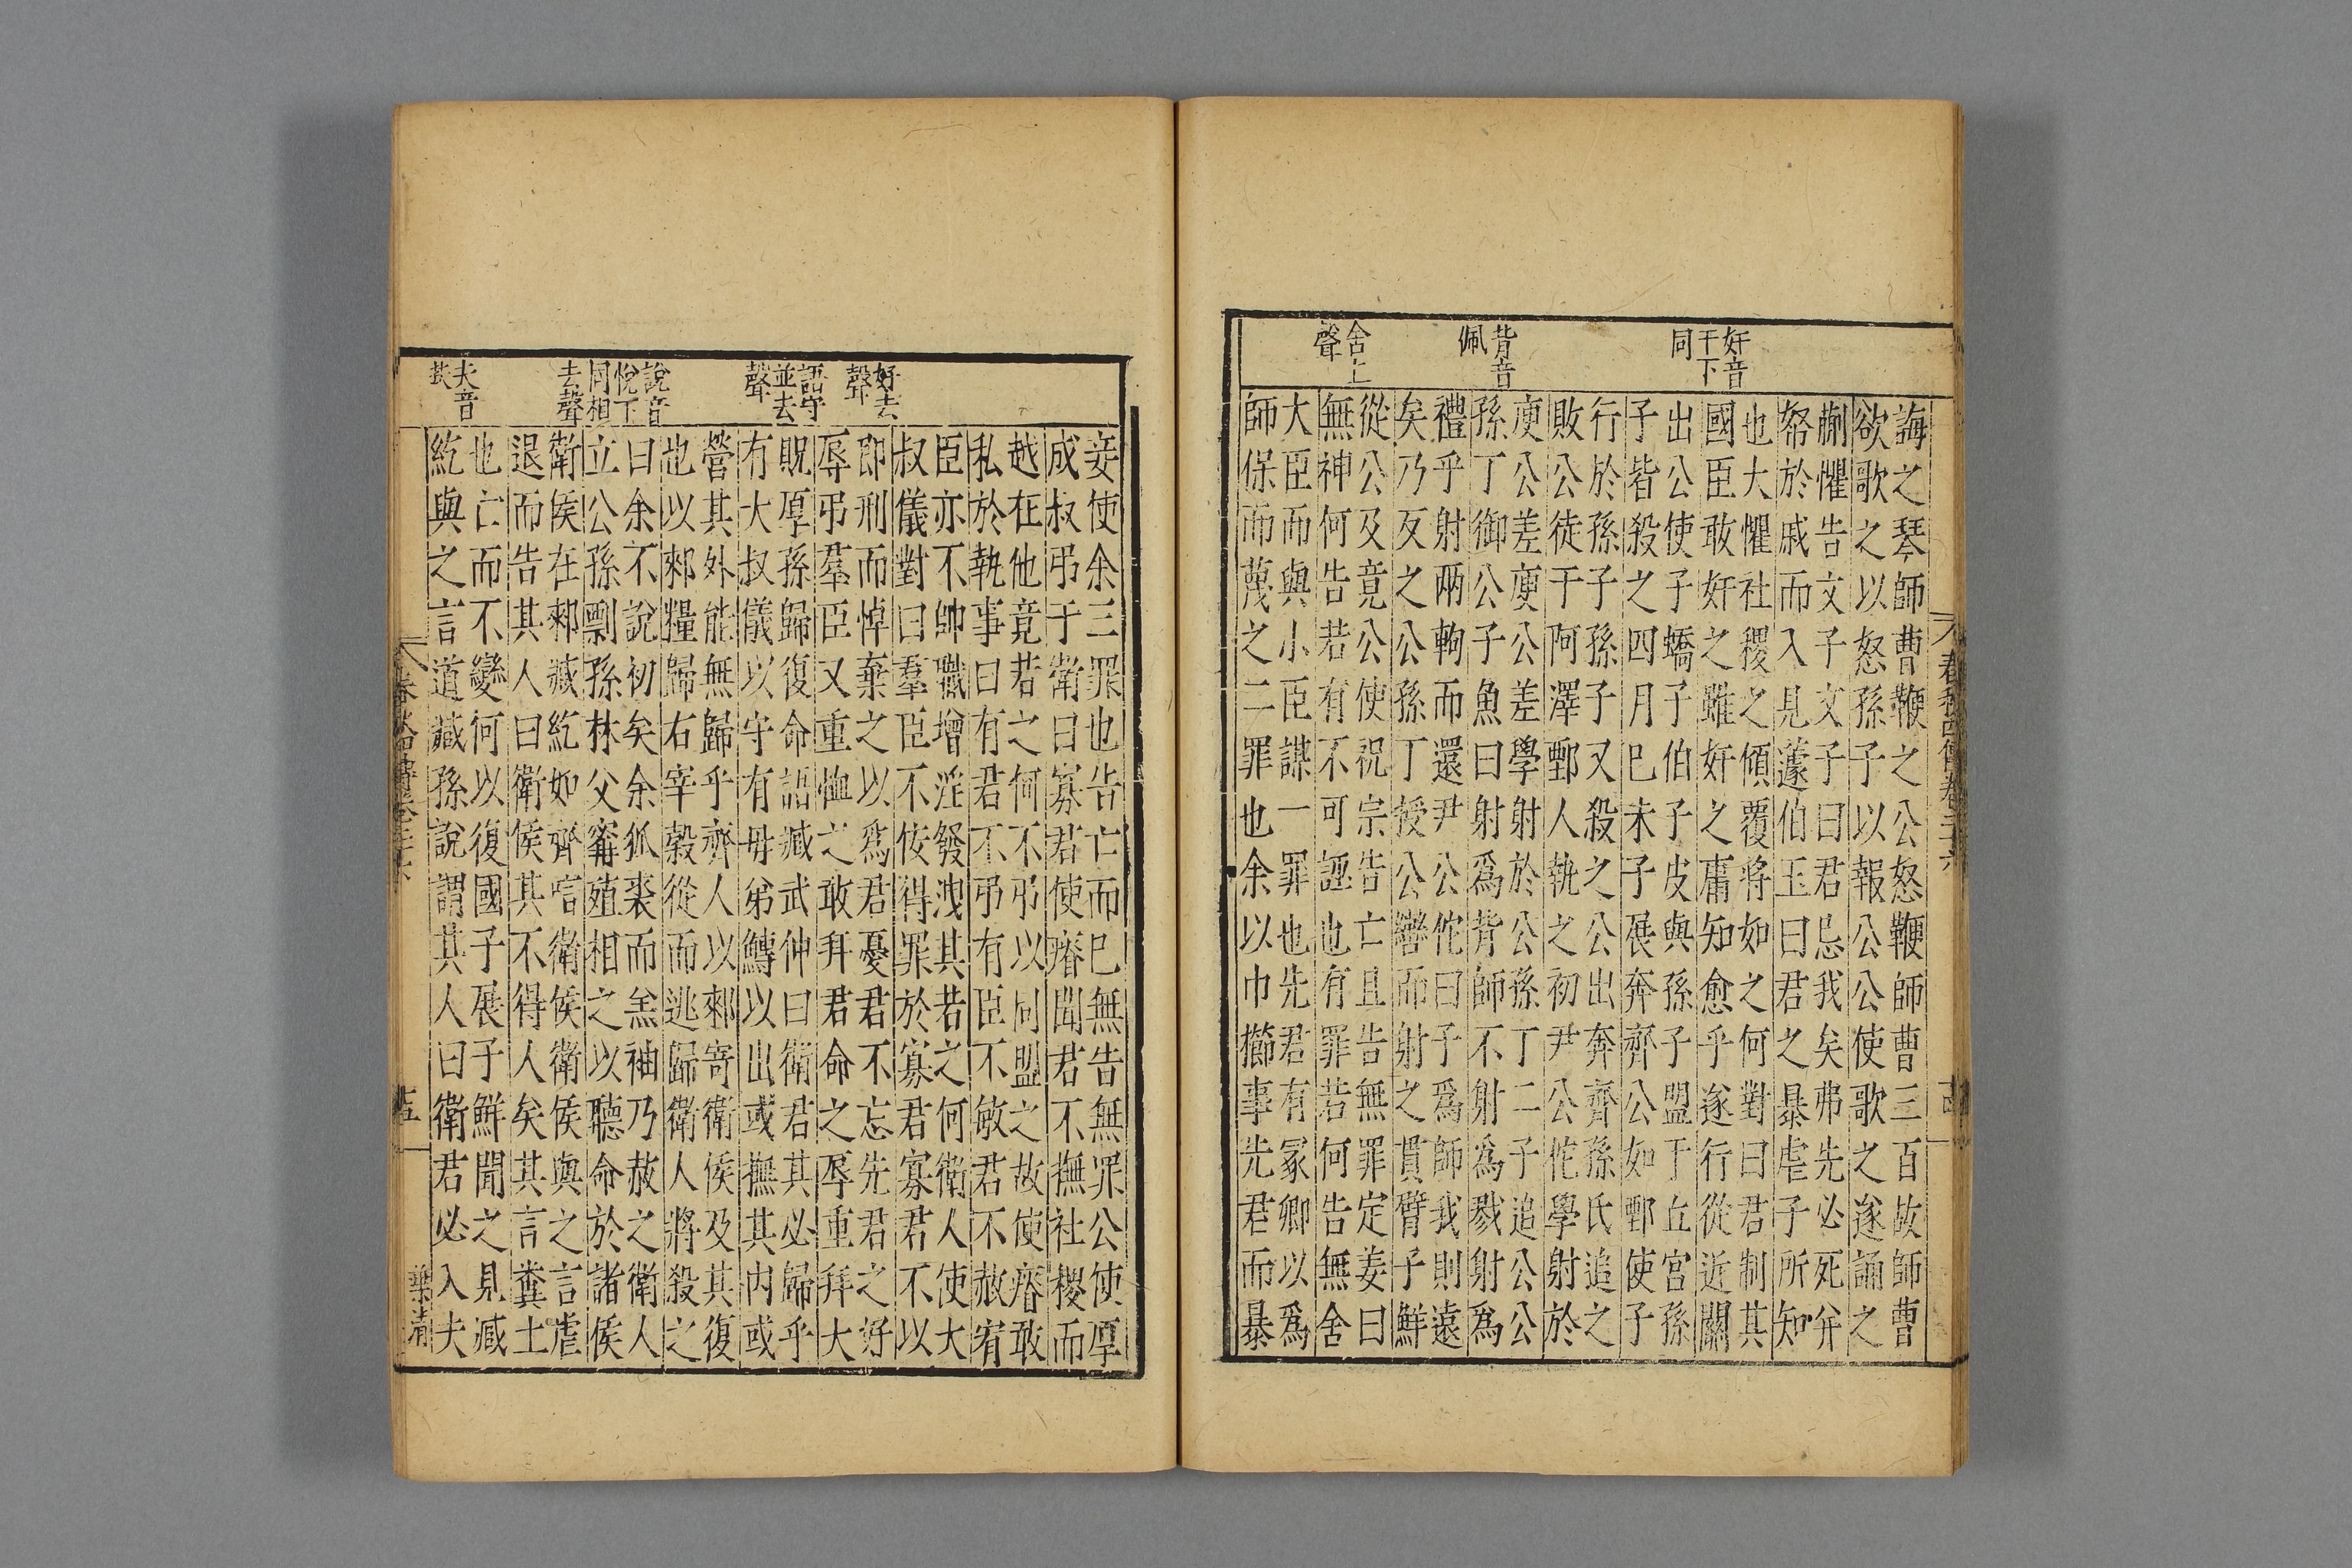 春秋四傳卷二十六
奸音
干下
同
背音
佩
舍上
聲
誨之琴師曹鞭之公怒鞭師曹三百故師曹
欲歌之以怒孫子以報公公使歌之遂誦之
蒯懼告文子文子曰君忌我矣弗先必死并
帑於戚而入見蘧伯玉曰君之暴虐子所知
也大懼社稷之傾覆將如之何對曰君制其
國臣敢奸之雖奸之庸知愈乎遂行從近關
出公使子蟜子伯子皮與孫子盟于丘宮孫
子皆殺之四月巳未子展奔齊公如鄄使子
行於孫子孫子又殺之公出奔齊孫氏追之
敗公徒于阿澤鄄人執之初尹公佗學射於
庾公差庾公差學射於公孫丁二子追公公
孫丁御公子魚曰射爲背師不射爲戮射爲
禮乎射兩軥而還尹公佗曰子爲師我則遠
矣乃反之公孫丁授公轡而射之貫臂子鮮
從公及竟公使祝宗告亡且告無罪定姜曰
無神何告若有不可誣也有罪若何告無舍
大臣而與小臣謀一罪也先君有冢卿以爲
師保而蔑之二罪也余以巾櫛事先君而暴
好去
聲
語守
並去
聲
說音
悅下
同相
去聲
夫音
扶
妾使余三罪也告亡而巳無告無罪公使厚
成叔弔于衛曰寡君使瘠聞君不撫社稷而
越在他竟若之何不弔以同盟之故使瘠敢
私於執事曰有君不弔有臣不敏君不赦宥
臣亦不帥職增淫發洩其若之何衛人使大
叔儀對曰羣臣不佞得罪於寡君寡君不以
即刑而悼棄之以爲君憂君不忘先君之好
辱弔羣臣又重恤之敢拜君命之辱重拜大
貺厚孫歸復命語臧武仲曰衛君其必歸乎
有大叔儀以守有毋弟鱄以出或撫其內或
營其外能無歸乎齊人以郲寄衛侯及其復
也以郲糧歸右宰榖從而逃歸衛人將殺之
曰余不說初矣余狐裘而羔袖乃赦之衛人
立公孫剽孫林父甯殖相之以聽命於諸侯
衛侯在郲臧紇如齊唁衛侯衛侯與之言虐
退而告其人曰衛侯其不得人矣其言糞土
也亡而不變何以復國子展子鮮聞之見臧
紇與之言道臧孫說謂其人曰衛君必入夫